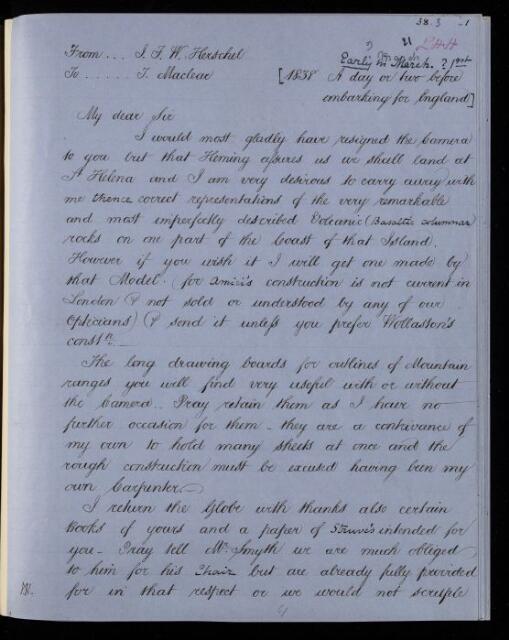 38.3 -1
21 LHH
From ... J. F. W. Herschel
Early in March. ?1st
To ...... T. Maclear
[1838 A day or two before
embarking for England]
My dear Sir
I would most gladly have resigned the Camera
to you but that Fleming assures us we shall land at
St Helena and I am very desirous to carry away with
me thence correct representations of the very remarkable
and most imperfectly described Volcanic (Basaltic columnar
rocks on one part of the Coast of that Island.
However if you wish it I will get one made by
that Model. (for Amici's construction is not current in
London (& not sold or understood by any of our
Opticians) & send it unless you prefer Wollaston's
constn.
The long drawing boards for outlines of Mountain
ranges you will find very useful with or without
the Camera.. Pray retain them as I have no
further occasion for them - they are a contrivance of
my own to hold many sheets at once and the
rough construction must be excused having been my
own Carpenter.
I return the Globe with thanks also certain
Books of yours and a paper of Struve's intended for
you - Pray tell Mr. Smyth we are much obliged
to him for his Chair but are already fully provided
for in that respect or we would not scruple
181.